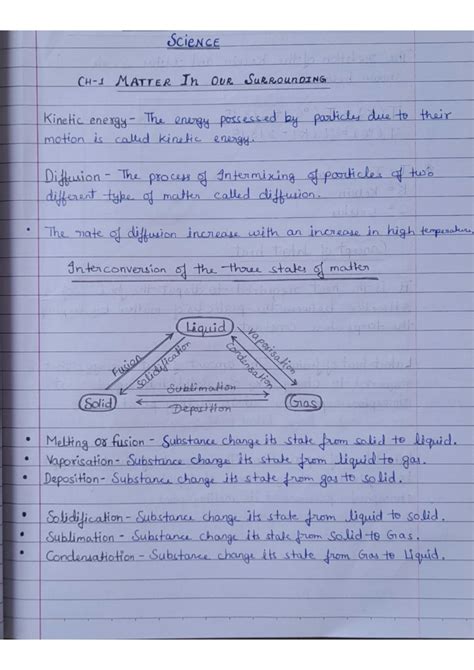 SCIENCE
CH-1 MATTER IN OUR SURROUNDING
Kinetic energy - The energy possessed by particles due to their
motion is called kinetic energy.
Diffusion - The process of Intermixing of particles of two
different type of matter called diffusion.
• The rate of diffusion increase with an increase in high temperature.
Interconversion of the three states of matter
Liquid
Fusion
Solidification
Vaporisation
Condensation
Sublimation
Solid
Gas
Deposition
• Melting or fusion - Substance change its state from solid to liquid.
• Vaporisation - Substance change its state from liquid to gas.
• Deposition - Substance change its state from gas to solid.
• Solidification - Substance change its state from liquid to solid.
• Sublimation - Substance change its state from Solid to Gas.
• Condensatiotion - Substance change its state from Gas to Liquid.